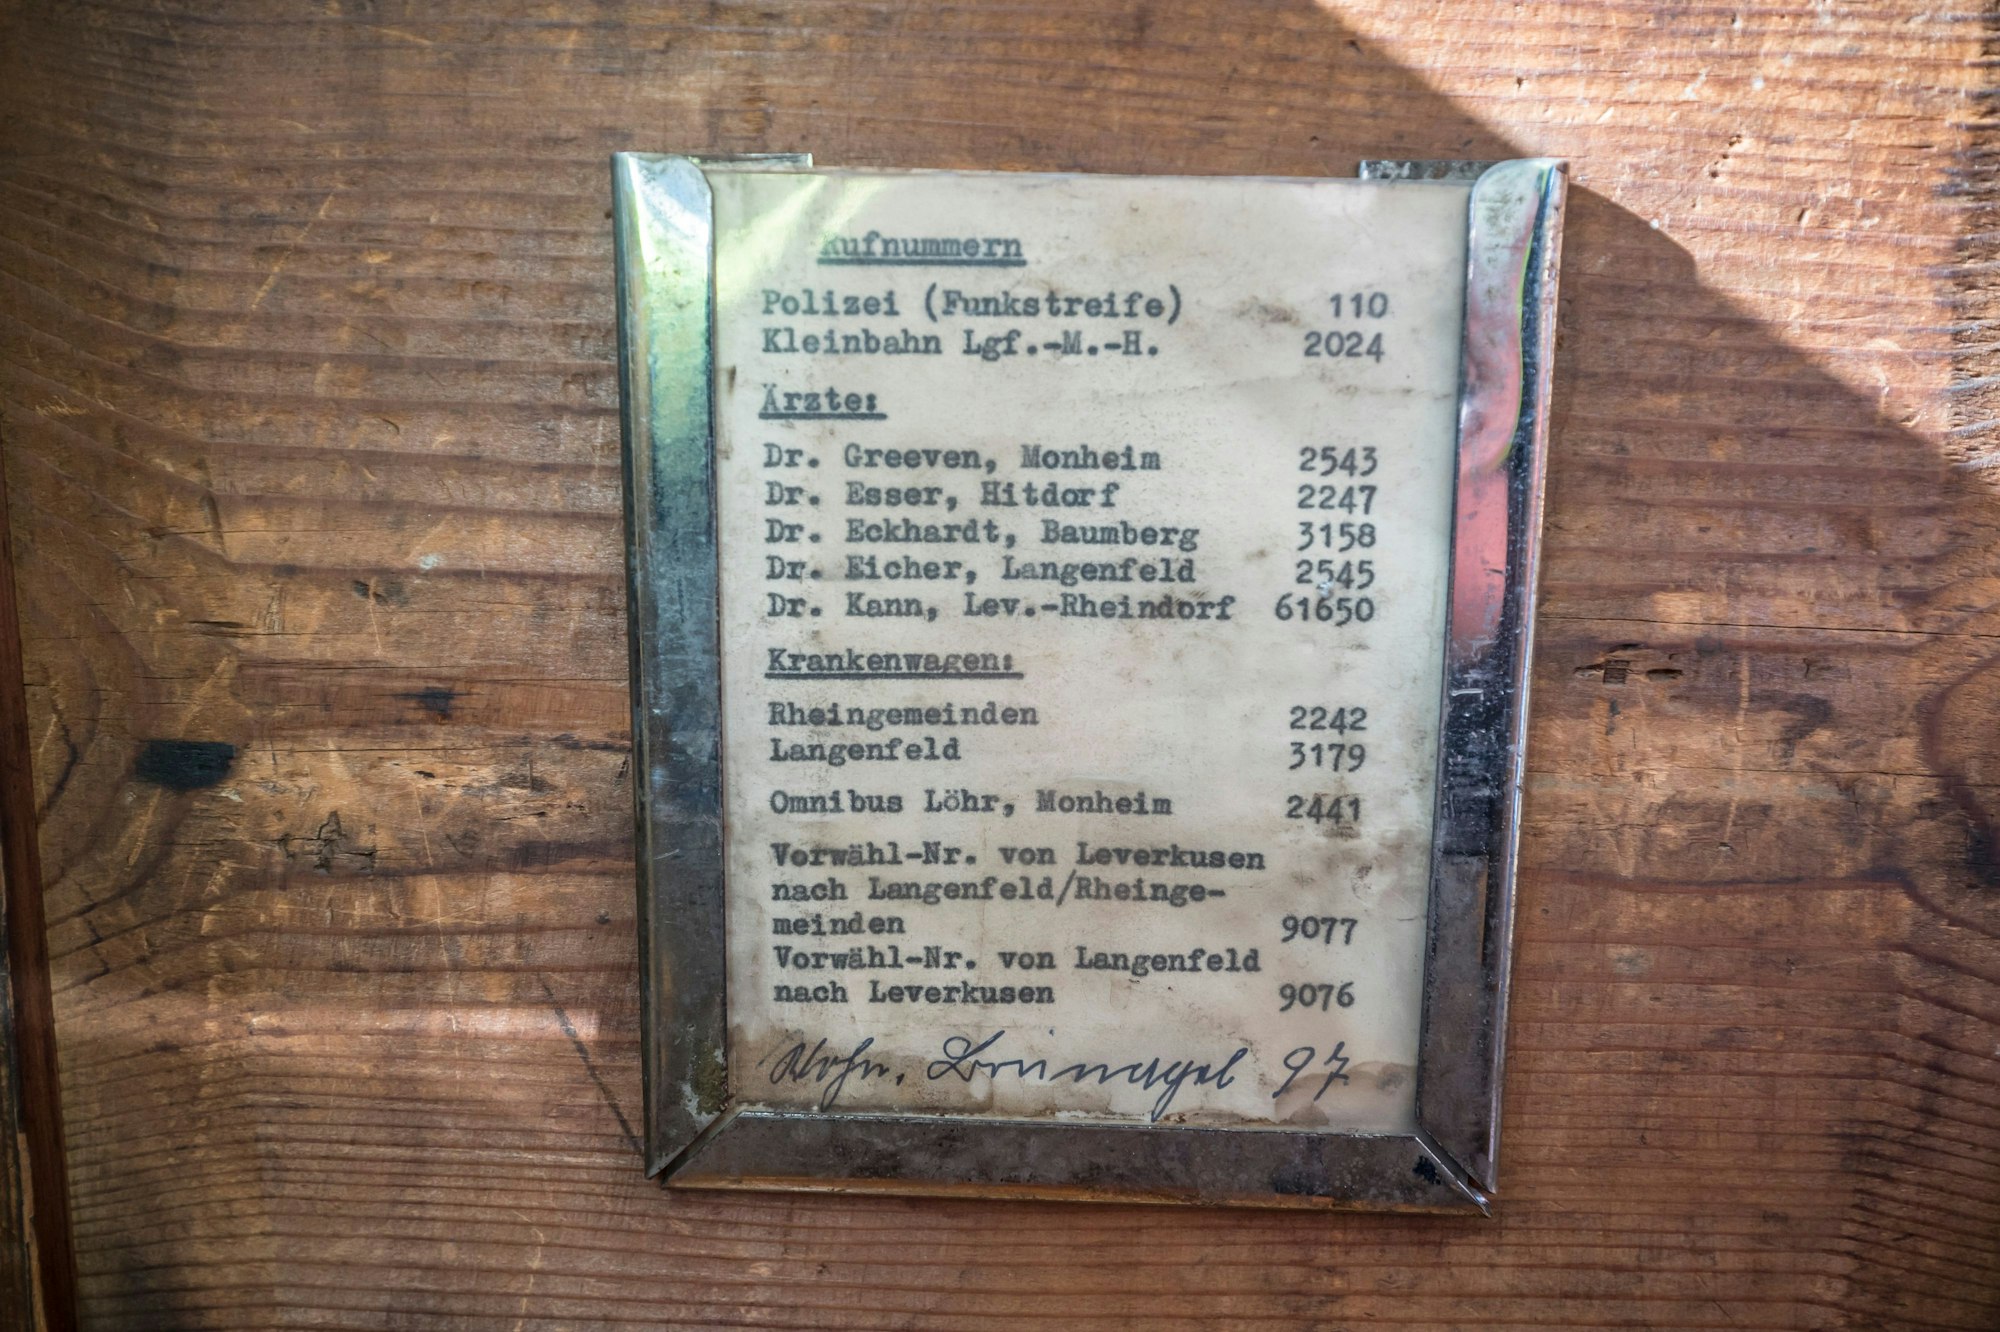 Rufnummern
Polizei (Funkstreife) 110
Kleinbahn Lgf.-M.-H. 2024
Ärzte:
Dr. Greeven, Monheim 2543
Dr. Esser, Hitdorf 2247
Dr. Eckhardt, Baumberg 3158
Dr. Eicher, Langenfeld 2545
Dr. Kann, Lev.-Rheindorf 61650
Krankenwagen:
Rheingemeinden 2242
Langenfeld 3179
Omnibus Löhr, Monheim 2441
Vorwähl-Nr. von Leverkusen
nach Langenfeld/Rheinge-
meinden 9077
Vorwähl-Nr. von Langenfeld
nach Leverkusen 9076
97